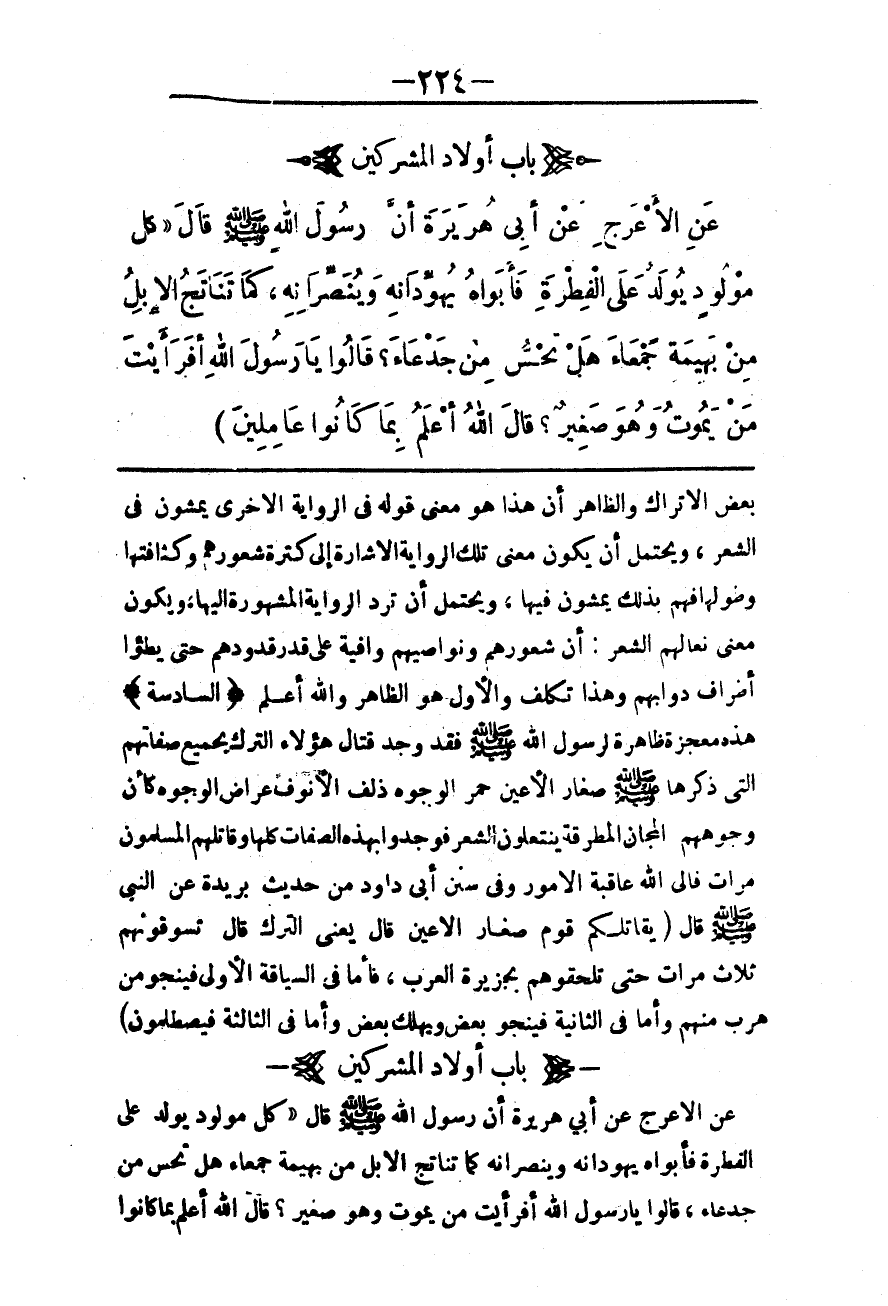 —٢٢٤—
باب أولاد المشركين
عَنِ الأَعْرَجِ عَنْ أَبِى هُرَيْرَةَ أَنَّ رسُولَ اللهِ ﷺ قَالَ « كل
مَوْلُودٍ يُولَدُ عَلَى الْفِطْرَةِ فَأَبَوَاهُ يُهَوِّدَانِهِ وَيُنَصِّرَانِهِ ، كَمَا تَنَاتَجُ الإِبِلُ
مِنْ بَهِيمَةٍ جَمْعَاءَ هَلْ تُحْسُّ مِن جَدْعَاءَ ؟ قَالُوا يَارَسُولَ اللهِ أَفَرَأَيْتَ
مَنْ يَمُوتُ وَهُوَ صَغِيرٌ ؟ قَالَ اللهُ أَعْلَمُ بِمَا كَانُوا عَامِلِينَ )
بعض الاتراك والظاهر أن هذا هو معنى قوله فى الرواية الاخرى يمشون فى
الشعر ، ويحتمل أن يكون معنى تلك الرواية الاشارة إلى كثرة شعورهم وكثافتها
وطولها فهم بذلك يمشون فيها ، ويحتمل أن ترد الرواية المشهورة اليها، ويكون
معنى نعالهم الشعر : أن شعورهم ونواصيهم وافية على قدر قدودهم حتى يطؤا
أطراف دوابهم وهذا تكلف والأول هو الظاهر والله أعلم ﴿ السادسة ﴾
هذه معجزة ظاهرة لرسول الله ﷺ فقد وجد قتال هؤلاء الترك بجميع صفاتهم
التى ذكرها ﷺ صغار الأعين حمر الوجوه ذلف الأنوف عراض الوجوه كأن
وجوههم المجان المطرقة ينتعلون الشعر فوجدوا بهذه الصفات كلها وقاتلهم المسلمون
مرات فالى الله عاقبة الامور وفى سنن أبى داود من حديث بريدة عن النبى
ﷺ قال ( يقاتلكم قوم صغار الاعين قال يعنى الترك قال تسوقونهم
ثلاث مرات حتى تلحقوهم بجزيرة العرب ، فأما فى السياقة الأولى فينجو من
هرب منهم وأما فى الثانية فينجو بعض ويهلك بعض وأما فى الثالثة فيصطلمون)
باب أولاد المشركين
عن الاعرج عن أبي هريرة أن رسول الله ﷺ قال « كل مولود يولد على
الفطرة فأبواه يهودانه وينصرانه كما تناتج الابل من بهيمة جمعاء هل تحس من
جدعاء ، قالوا يارسول الله أفرأيت من يموت وهو صغير ؟ قال الله أعلم بما كانوا